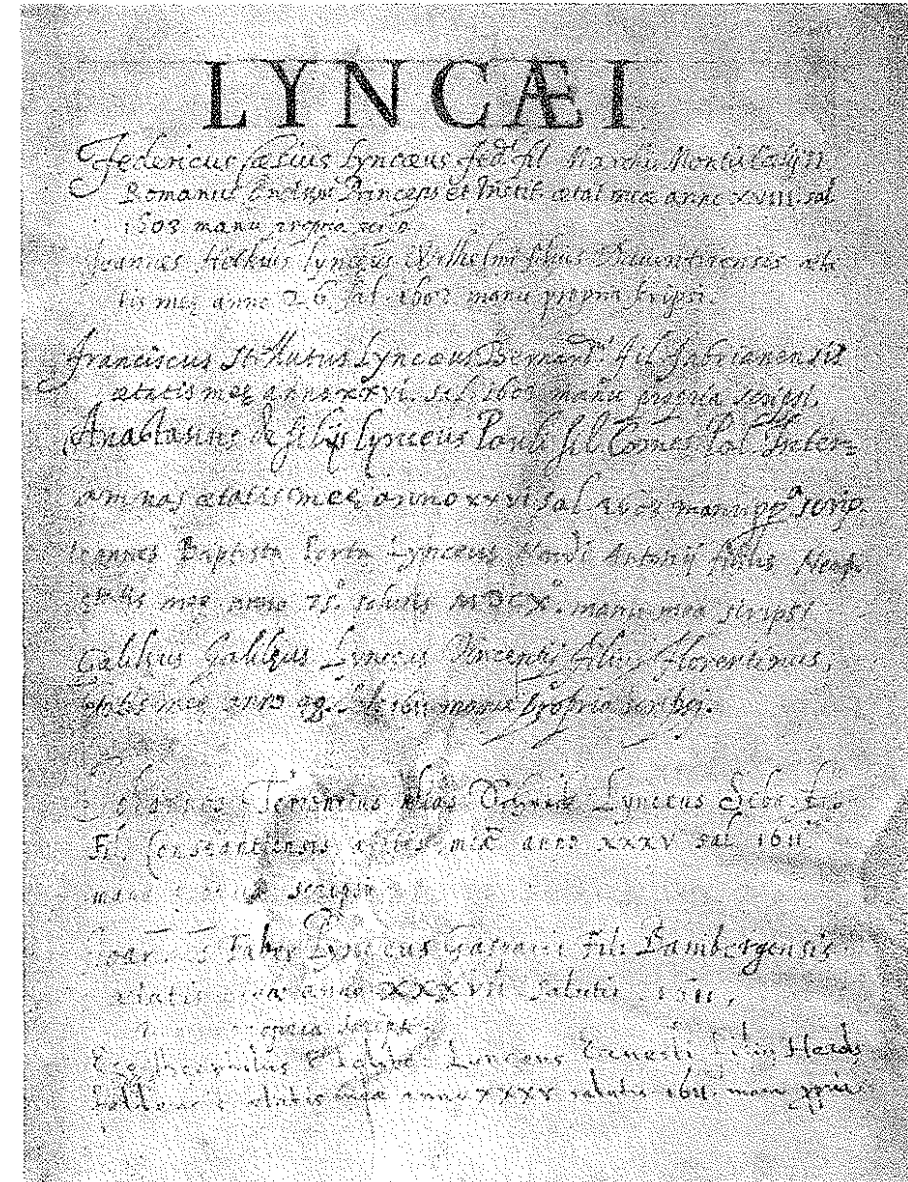 LYNCÆI
Federicus Cæsius Lynceus fed. fil. March. Montis Cælij II
Romanus Lyncæor. Princeps et Instit. ætat. meæ anno XVIII. sal
1603 manu propria scripsi
Joannes Heckius Lynceus Wilhelmi filius Daventriensis æta
tis meę anno 26 sal. 1603 manu propria scripsi.
Franciscus Stellutus Lynceus Bernard.ⁱ fil. fabrianensis
ætatis meę anno xxvi. sal. 1603 manu propria scripsi.
Anastasius de filijs Lynceus Pauli fil. Comes Pal. Inter=
amnas ætatis meę anno xxvi sal 1603 manu pp.ª scrip.
Ioannes Baptista Porta Lynceus Nardi Antonij filius Neap.
ętatis meę anno 75.° salutis MDCX.° manu mea scripsi
Galileus Galileus Lynceus Vincentij filius florentinus,
ętatis meę anno 48. sal. 1611 manu propria scripsi.
Terrentius Lynceus
Fil. Constantiensis ætatis meæ anno XXXV sal. 1611
manu propria scripsi
Faber Lynceus Gasparis Fil. Bambergensis
ætatis meæ anno XXXVII salutis 1611,
propria scripsi.
Ego Theophilus Lynceus Ernesti filius
ætatis meæ anno XXXV salutis 1611. manu